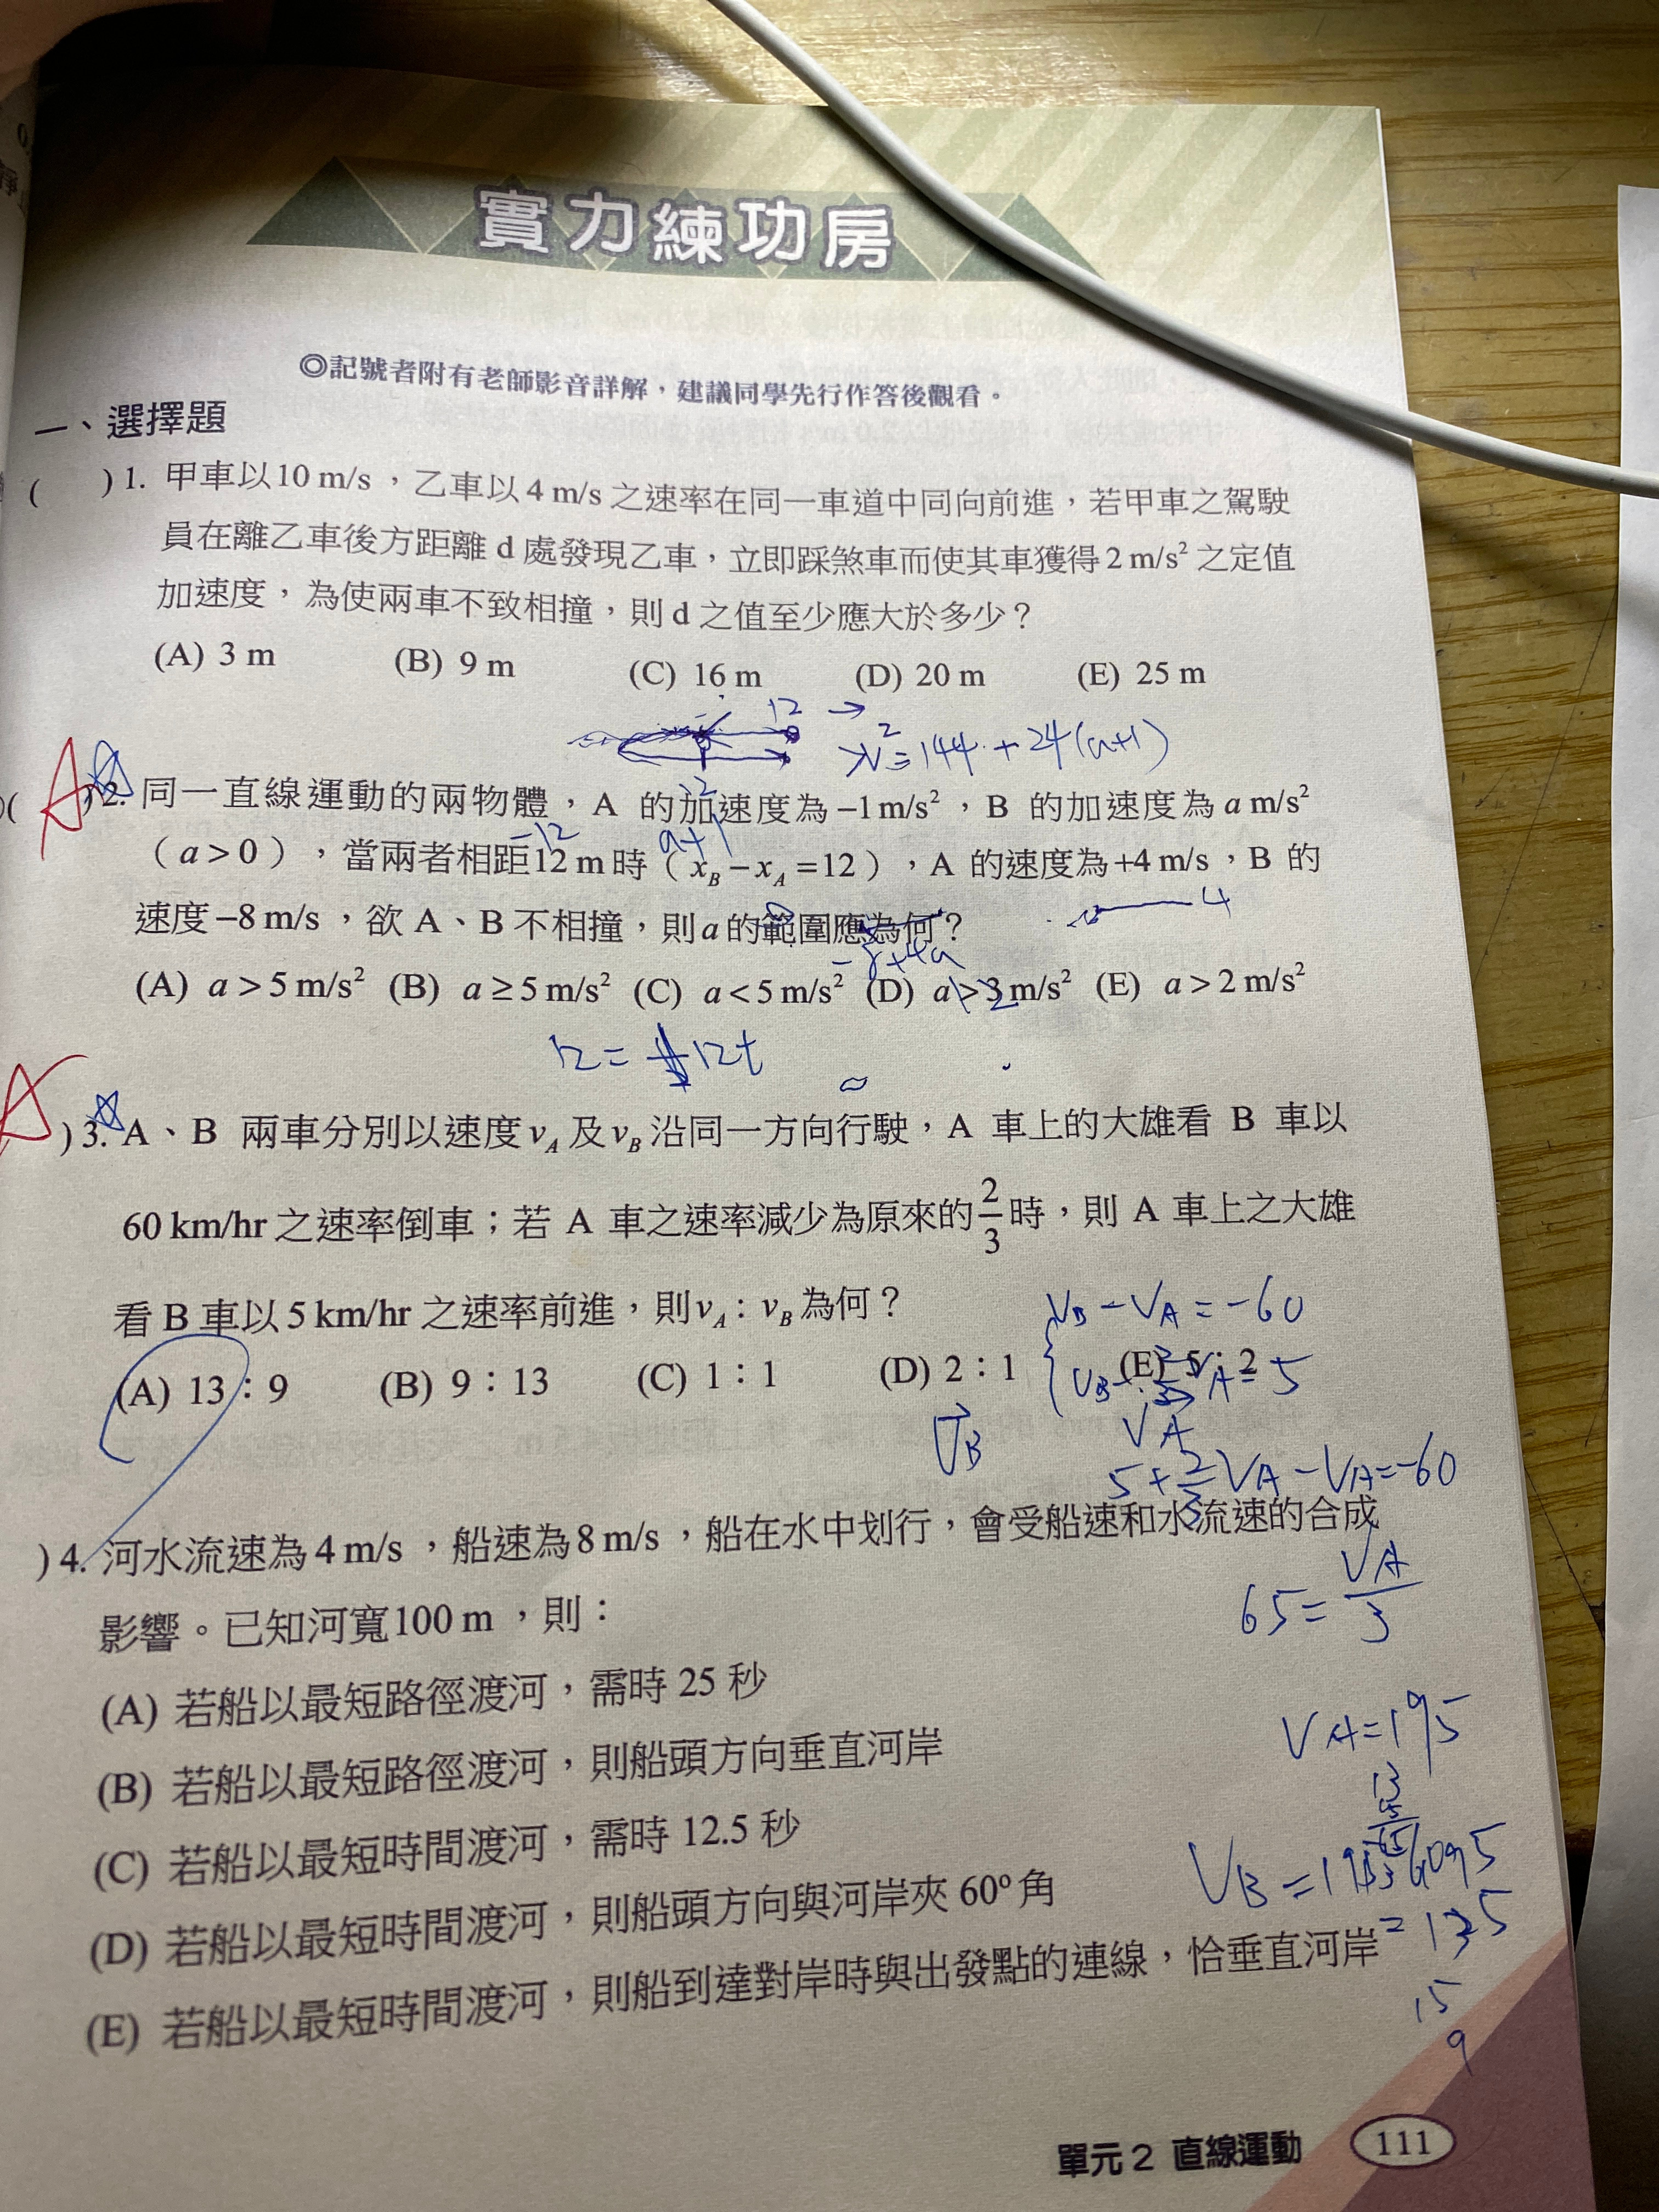 實力練功房
◎記號者附有老師影音詳解，建議同學先行作答後觀看。
一、選擇題
(　　) 1. 甲車以10 m/s，乙車以4 m/s之速率在同一車道中同向前進，若甲車之駕駛
員在離乙車後方距離 d 處發現乙車，立即踩煞車而使其車獲得2 m/s²之定值
加速度，為使兩車不致相撞，則 d 之值至少應大於多少？
(A) 3 m (B) 9 m (C) 16 m (D) 20 m (E) 25 m
12 →
V²=144+24(a+1)
( A ) 2. 同一直線運動的兩物體，A 的加速度為 −1 m/s²，B 的加速度為 a m/s²
-12 a+1
（a>0），當兩者相距12 m時（x_B−x_A=12），A 的速度為+4 m/s，B 的
速度−8 m/s，欲 A、B 不相撞，則a的範圍應為何？
4
-8+4a
(A) a>5 m/s² (B) a≥5 m/s² (C) a<5 m/s² (D) a>3 m/s² (E) a>2 m/s²
12= 12t
A ) 3. A、B 兩車分別以速度v_A及v_B沿同一方向行駛，A 車上的大雄看 B 車以
60 km/hr之速率倒車；若 A 車之速率減少為原來的2/3時，則 A 車上之大雄
看 B 車以5 km/hr之速率前進，則v_A：v_B為何？
VB-VA=-60
(A) 13：9 (B) 9：13 (C) 1：1 (D) 2：1 (E) 5：2
VB-2/3VA=5
VB VA
5+2/3VA-VA=-60
) 4. 河水流速為4 m/s，船速為8 m/s，船在水中划行，會受船速和水流速的合成
65=VA/3
影響。已知河寬100 m，則：
(A) 若船以最短路徑渡河，需時 25 秒
VA=195
(B) 若船以最短路徑渡河，則船頭方向垂直河岸
13
(C) 若船以最短時間渡河，需時 12.5 秒
(D) 若船以最短時間渡河，則船頭方向與河岸夾 60°角
=135
(E) 若船以最短時間渡河，則船到達對岸時與出發點的連線，恰垂直河岸
15
9
單元 2 直線運動 111